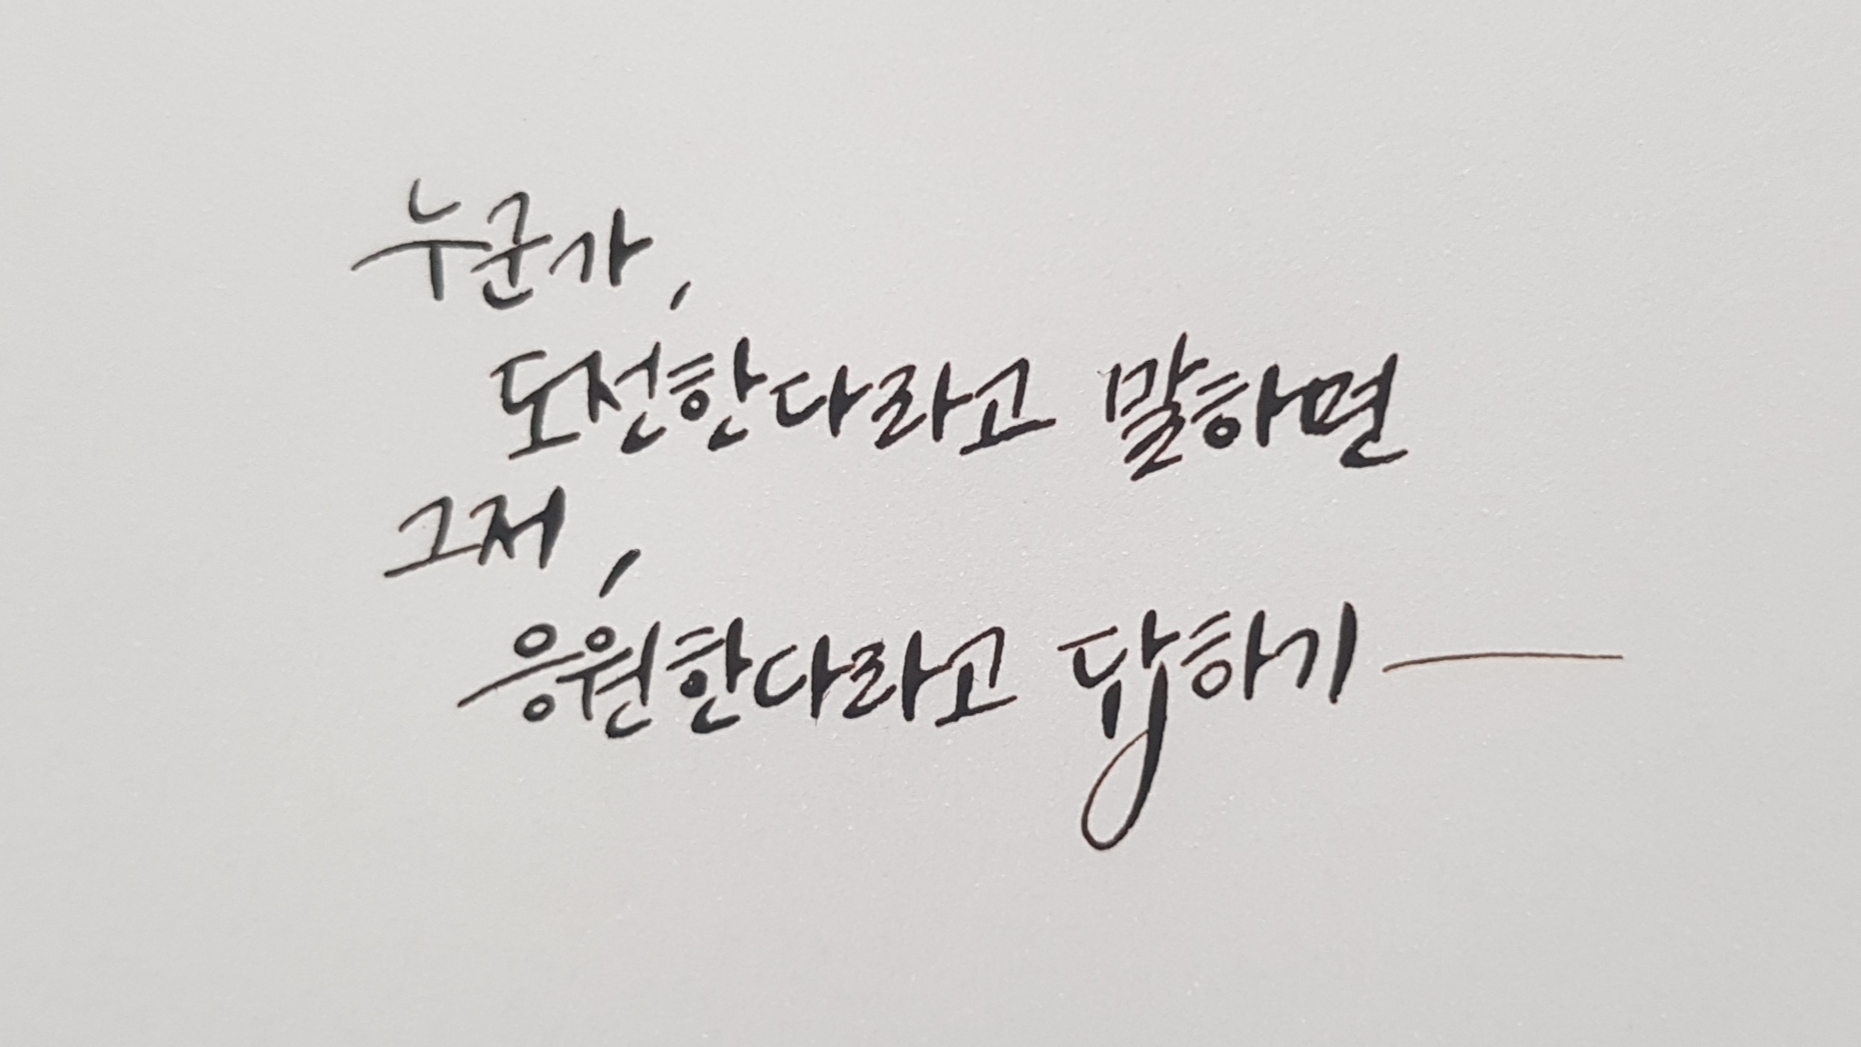 누군가,
도전한다라고 말하면
그저,
응원한다라고 답하기